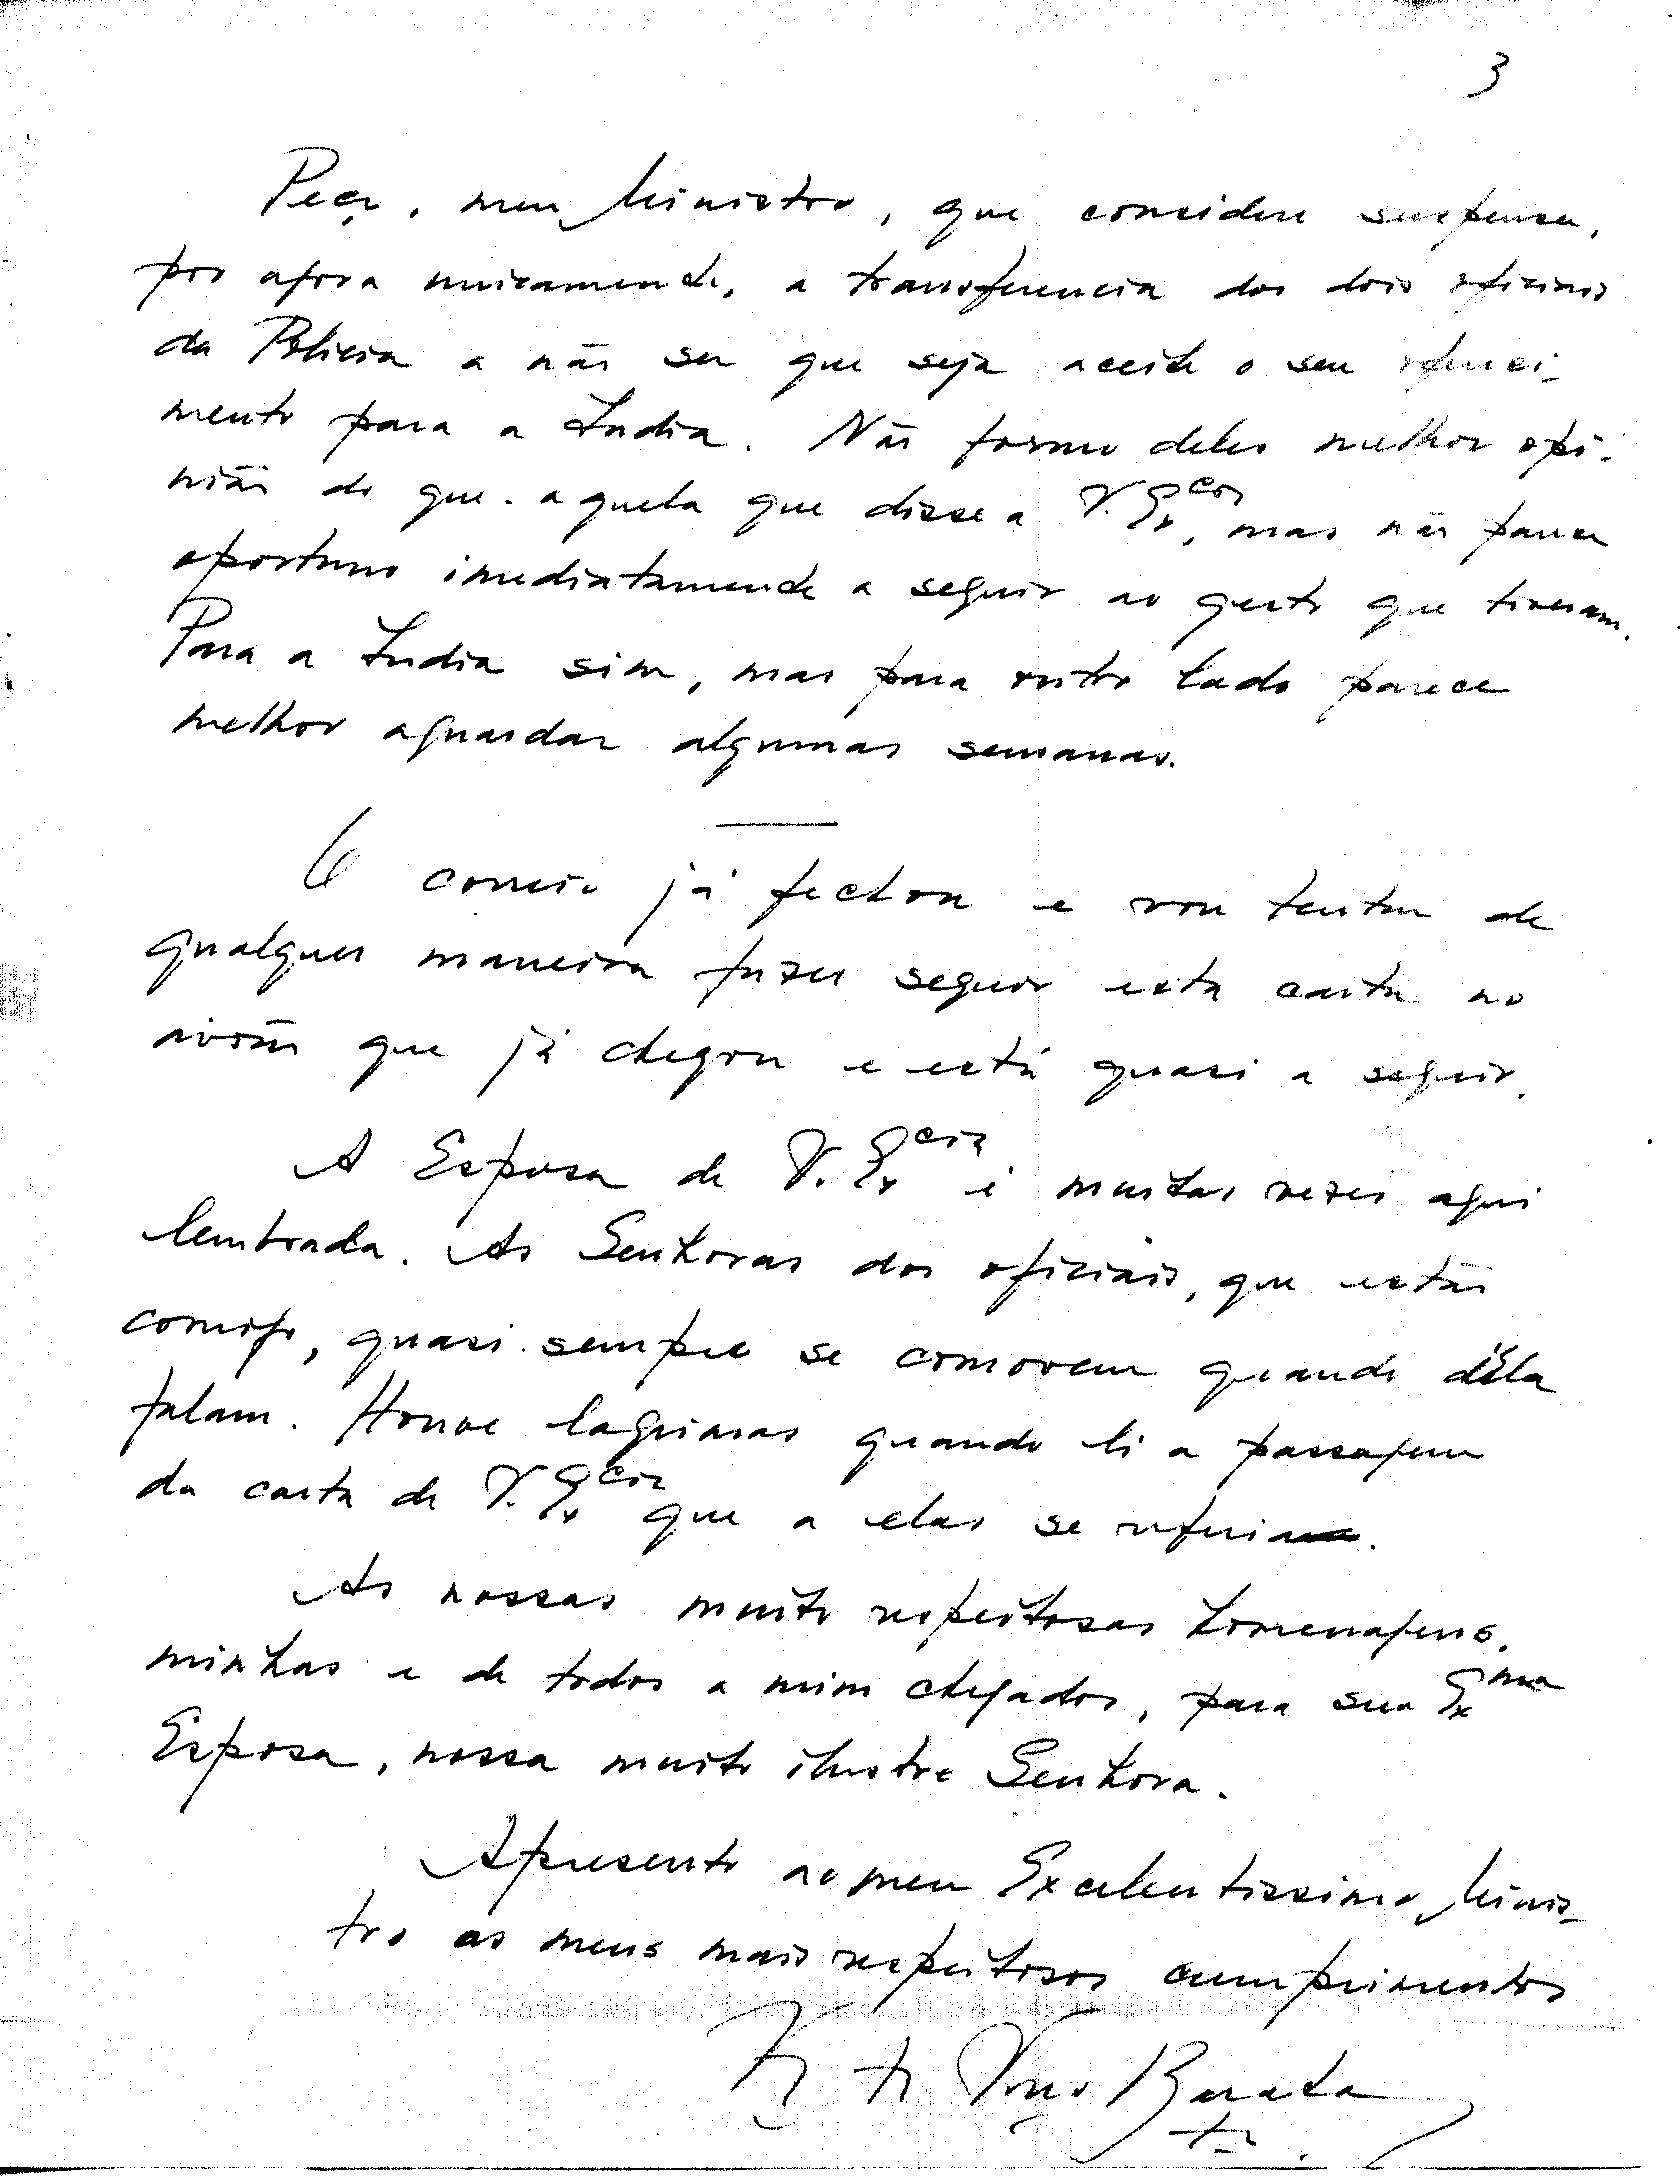 3
Peço, meu Ministro, que considere suspensa,
por agora unicamente, a transferencia dos dois oficiais
da Policia a não ser que seja aceite o seu ofereci-
mento para a India. Não formo deles melhor opi-
nião do que aquela que disse a V. Ex.cia, mas não parece
oportuno imediatamente a seguir ao gesto que tiveram.
Para a India sim, mas para outro lado parece
melhor aguardar algumas semanas.
O correio já fechou e vou tentar de
qualquer maneira fazer seguir esta carta no
avião que já chegou e está quasi a seguir.
A Esposa de V. Excia é muitas vezes aqui
lembrada. As Senhoras dos oficiais, que estão
comigo, quasi sempre se comovem quando d'Ela
falam. Houve lagrimas quando li a passagem
da carta de V. Excia que a elas se referia.
As nossas muito respeitosas homenagens,
minhas e de todos a mim chegados, para sua Exma
Esposa, nossa muito ilustre Senhora.
Apresento ao meu Excelentissimo Minis-
tro os meus mais respeitosos cumprimentos
Barata